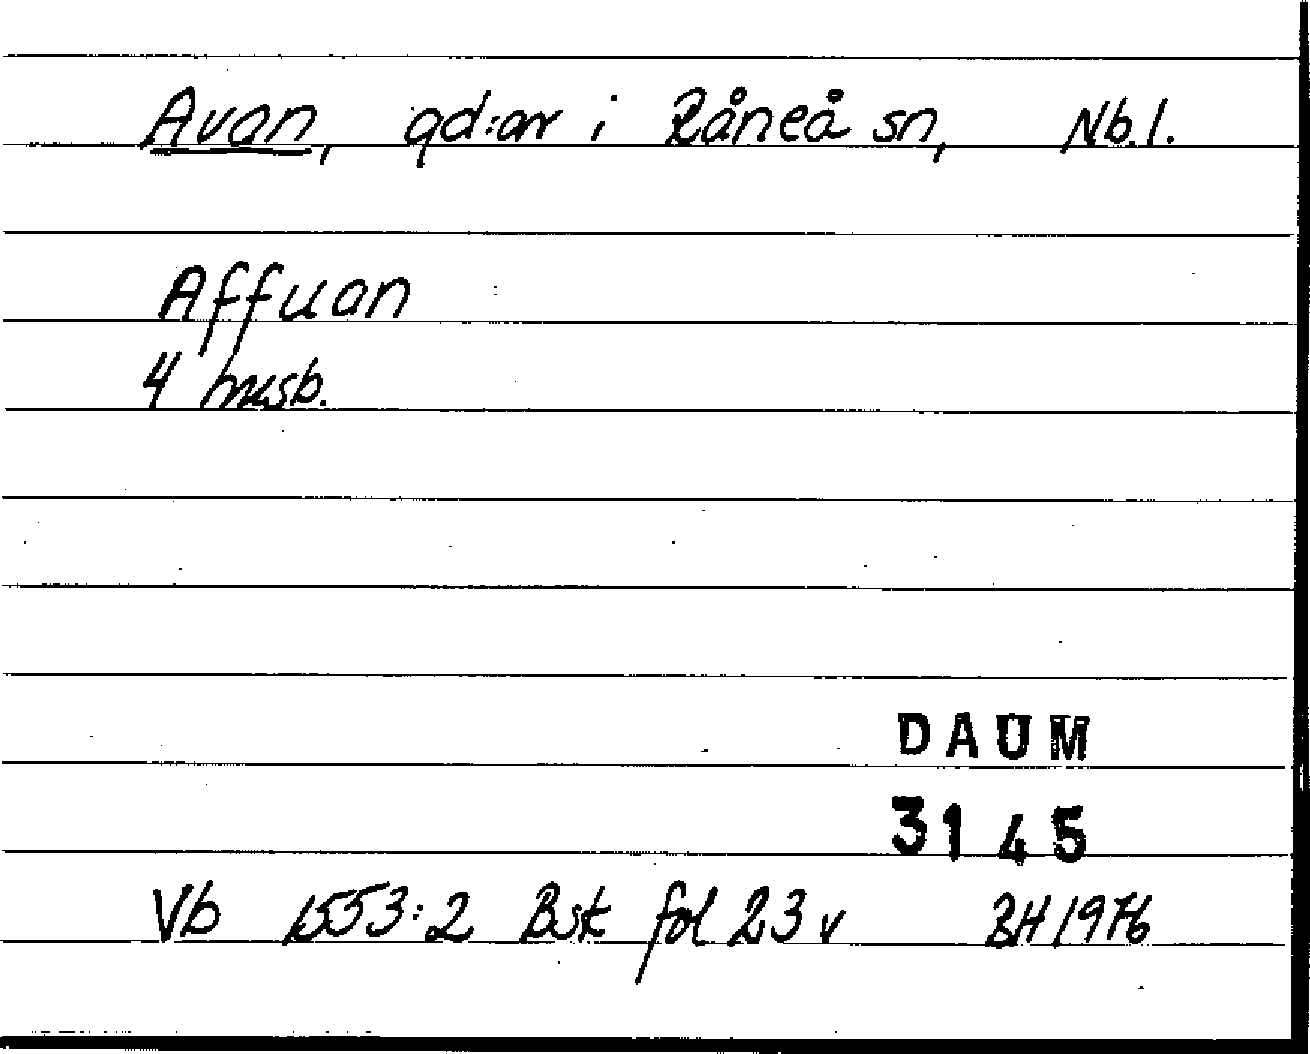 Avan, gd:ar i Råneå sn, Nb.l.
Affuan
4 husb.
DAUM
3145
Vb 1553:2 Bsk fol 23 v BH 1976